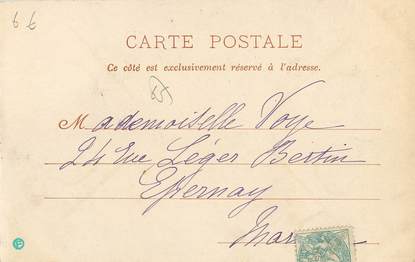 6 €
CARTE POSTALE
Ce côté est exclusivement réservé à l'adresse.
Mademoiselle Voye
24 Rue Léger Bertin
Epernay
Mar